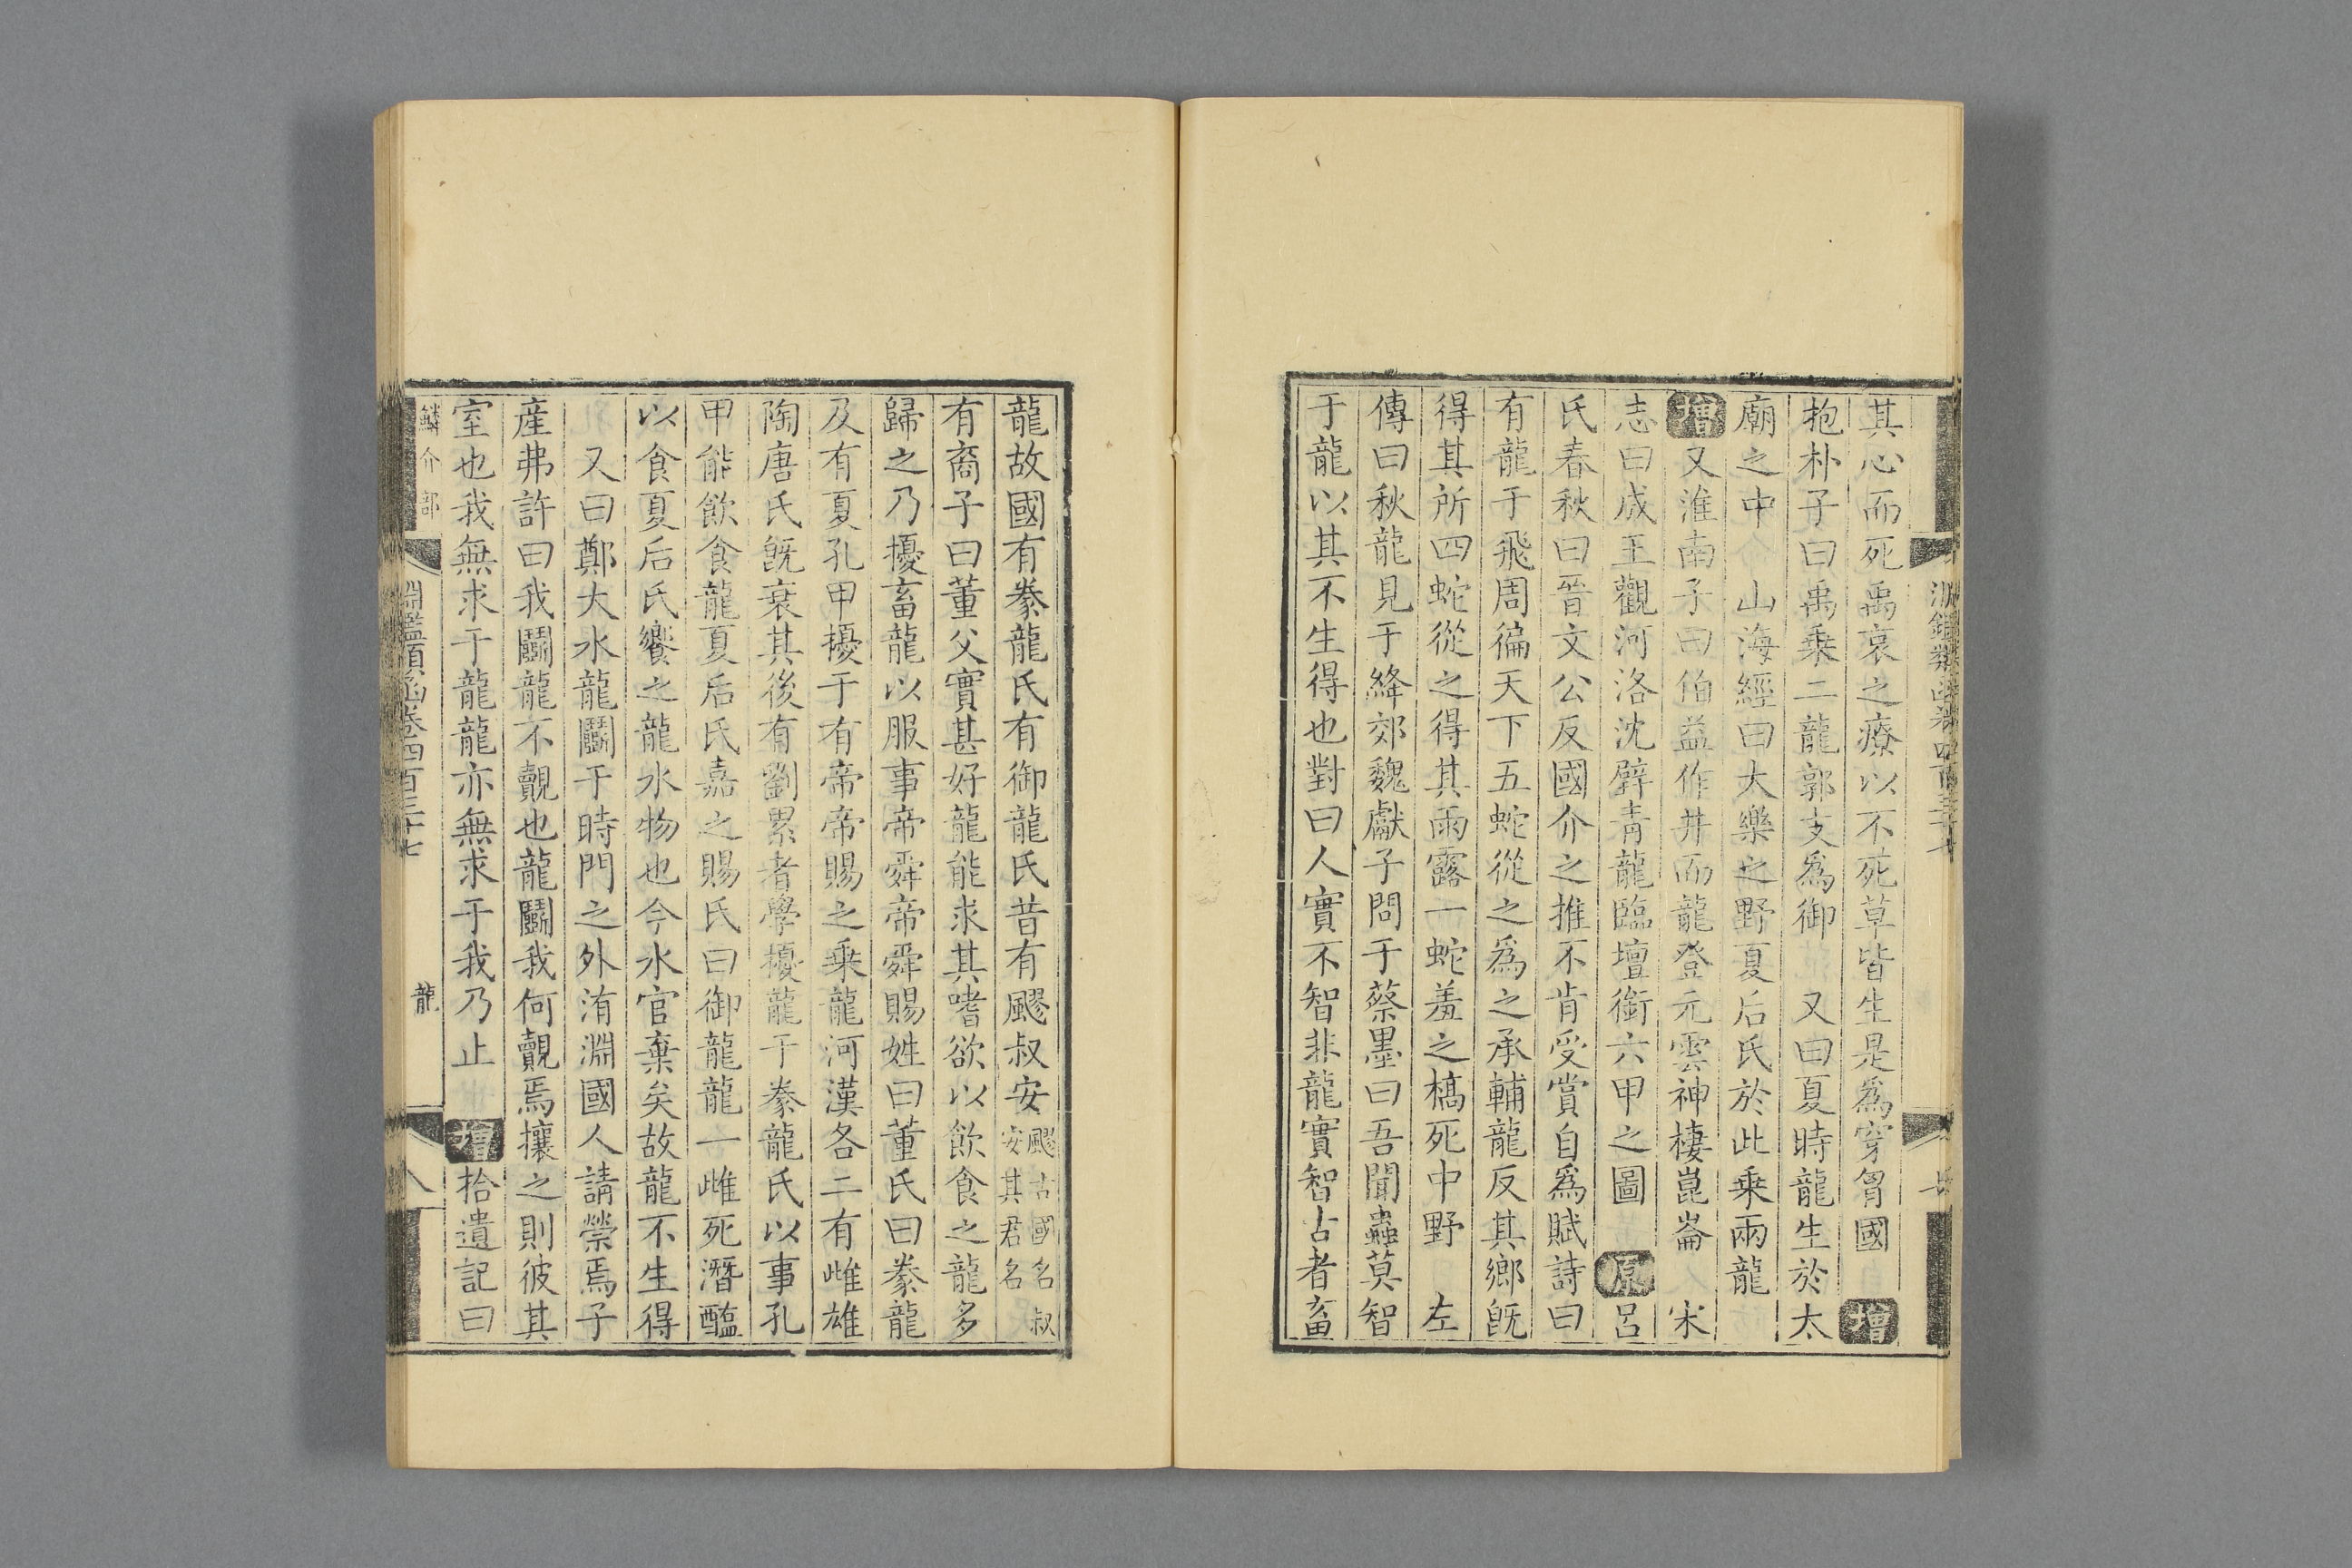 其心而死禹哀之療以不死草皆生是爲穿胷國 增
抱朴子曰禹乘二龍郭支爲御 又曰夏時龍生於太
廟之中 山海經曰大樂之野夏后氏於此乘兩龍
增又淮南子曰伯益作井而龍登元雲神棲崑崙 宋
志曰成王觀河洛沈璧青龍臨壇銜六甲之圖 原呂
氏春秋曰晉文公反國介之推不肯受賞自爲賦詩曰
有龍于飛周徧天下五蛇從之爲之承輔龍反其鄉旣
得其所四蛇從之得其雨露一蛇羞之槁死中野 左
傳曰秋龍見于絳郊魏獻子問于蔡墨曰吾聞蟲莫智
于龍以其不生得也對曰人實不智非龍實智古者畜
龍故國有豢龍氏有御龍氏昔有飂叔安飂古國名叔
安其君名
有裔子曰董父實甚好龍能求其嗜欲以飲食之龍多
歸之乃擾畜龍以服事帝舜帝舜賜姓曰董氏曰豢龍
及有夏孔甲擾于有帝帝賜之乘龍河漢各二有雌雄
陶唐氏旣衰其後有劉累者學擾龍于豢龍氏以事孔
甲能飲食龍夏后氏嘉之賜氏曰御龍龍一雌死潛醢
以食夏后氏饗之龍水物也今水官棄矣故龍不生得
又曰鄭大水龍鬭于時門之外洧淵國人請禜焉子
産弗許曰我鬭龍不覿也龍鬭我何覿焉攘之則彼其
室也我無求于龍龍亦無求于我乃止 增拾遺記曰
鱗介部
淵鑑類函卷四百三十七
龍
八